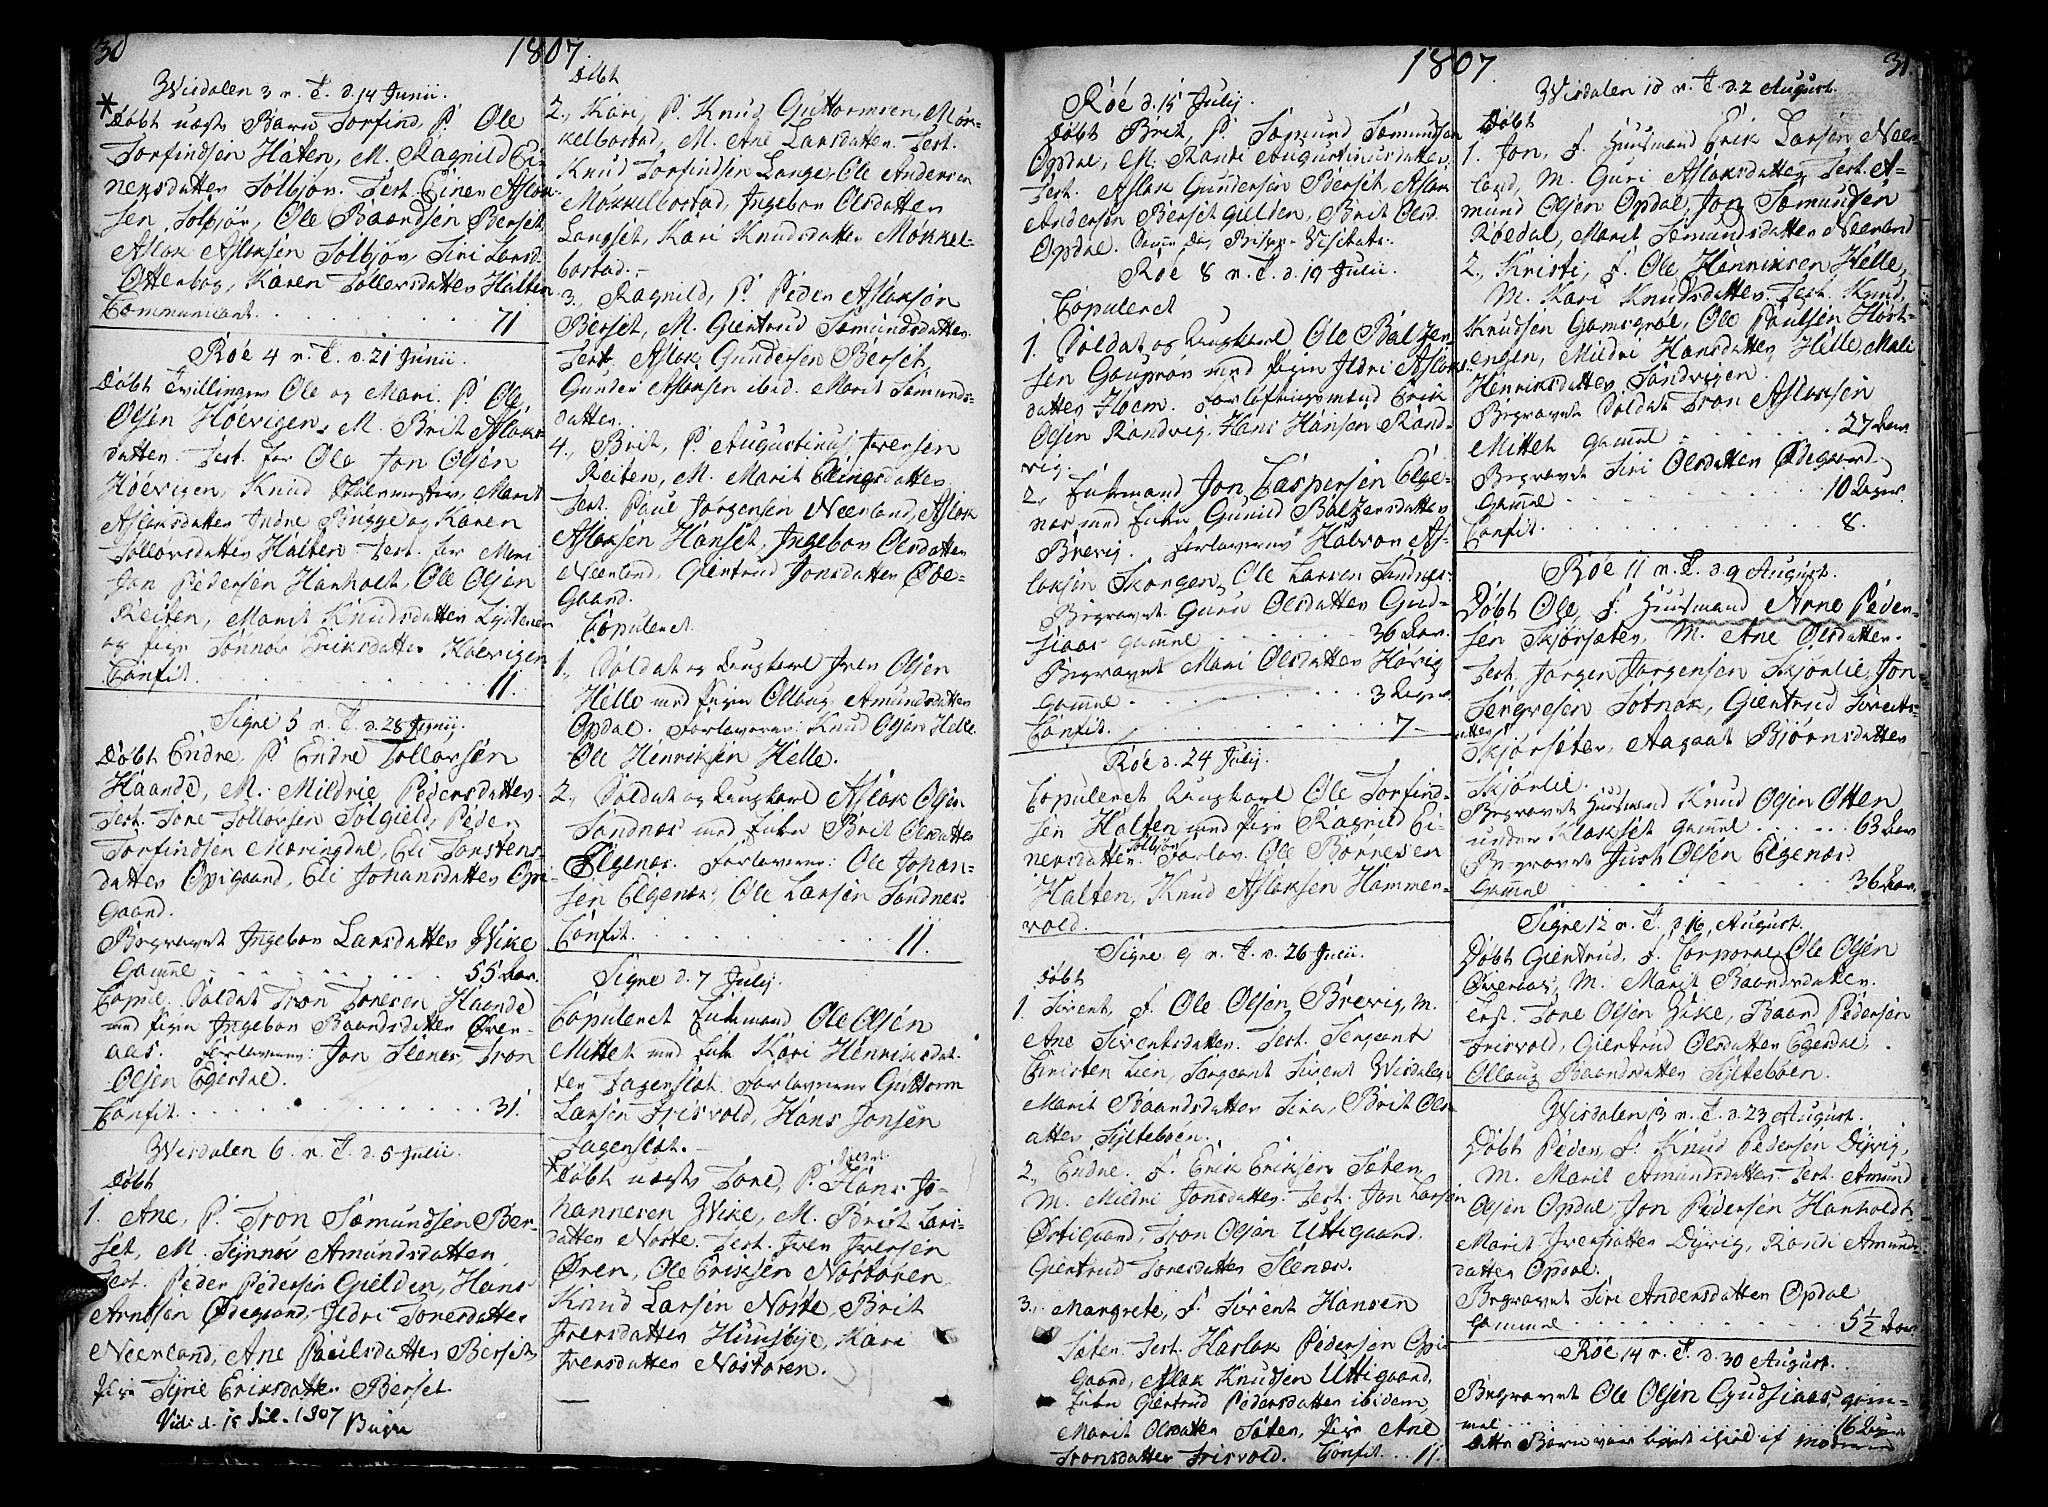 30
1807.
Wisdalen 3 n. T. d. 14 Junii.
* Døbt uægte Barn Torfind, P. Ole
Torfindsen Halten, M. Ragnild Ei-
nersdatter Solbjør. Test. Einer Aslak-
sen Solbjør, Ole Baardsen Berset,
Aslak Aslaksen Solbjør, Siri Larsd.
Otterbog, Karen Tollevsdatter Halten
Communicant. 71
Røe 4 n. T. d. 21 Junii.
Døbt Tvillinger Ole og Mari. P. Ole
Olsen Høevigen, M. Brit Aslaks-
datter. Test. for Ole Jon Olsen
Høevigen, Knud Skolemester, Marit
Aslaksdatter Indre Bugge og Karen
Tollevsdatter Halten Test. for Mari
Jon Pedersen Hanholt, Ole Olsen
Reiten, Marit Knudsdatter
og pige Sønnov Eriksdatter Høevigen
Confit. 11.
Signe 5 n. T. d. 28 Junii.
Døbt Endre, P. Endre Tollevsen
Haande, M. Mildrie Pedersdatter.
Test. Tore Tollevsen Solgield, Peder
Torfindsen Meringdal, Eli Torstens-
datter Opigaard, Eli Johansdatter Opi-
gaard.
Begravet Ingebor Larsdatter Wike
gamel 55 Aar.
Copul. Soldat Tron Toresen Haande
med pige Ingebor Baardsdatter Øver-
aas. Forlovere: Jon Stenes, Tron
Olsen Egerdal.
Confit. 31.
Wisdalen 6. n. T. d. 5 Julii.
Døbt
1. Ane, P. Tron Sæmundsen Ber-
set, M. Synnøv Amundsdatter
Test. Peder Pedersen Gielden, Hans
Arntsen Ødegaard, Ildri Toresdatter
Neerland, Ane Paulsdatter Berset
pige Syrie Eriksdatter Berset.
Vidi d. 15 Jul. 1807 Bugge
Døbt
2., Kari, P. Knud Guttormsen Mør-
kelbostad, M. Ane Larsdatter. Test.
Knud Torfindsen Langset, Ole Andersen
Møkkelbostad, Ingebor Olsdatter
Langset, Kari Knudsdatter Møkkel-
bostad.
3., Ragnild, P. Peder Aslaksøn
Berset, M. Giertrud Sæmundsdatter.
Test. Aslak Gundersen Berset,
Gunder Aslaksen ibid. Marit Sæmunds-
datter.
4., Brit, P. Augustinus Iversen
Reiten, M. Marit Ellingsdatter.
Test. Paul Jørgensen Neerland, Aslak
Aslaksen Hanset, Ingebor Olsdatter
Neerland, Giertrud Jonsdatter Øde-
gaard.
Copuleret.
1., Soldat og Ungkarl Iver Olsen
Helle med pigen Ollaug Amundsdatter
Opdal. Forlovere: Knud Olsen Helle
Ole Henriksen Helle.
2., Soldat og Ungkarl Aslak Olsen
Sandnes med Enken Brit Olsdatter
Elgenes. Forlovere: Ole Johan-
sen Elgenes, Ole Larsen Sandnes.
Confit. 11.
Signe d. 7 Julij.
Copuleret Enkemand Ole Olsen
Mittet med Enke Kari Henriksdat-
ter Fagerslet. Forlovere Guttorm
Larsen Frisvold, Hans Jonsen
Fagerslet.
* Døbt uægte Tore, P. Hans Jo-
hannesen Wike, M. Brit Lars-
datter Noste. Test. Iver Iversen
Øren, Ole Eriksen Nostøren
Knud Larsen Noste, Brit
Iversdatter Huusbye, Kari
Iversdatter Nostøren.
31.
1807.
Røe d. 15 Julij.
Døbt Brit, P. Sæmund Sæmundsen
Opdal, M. Randi Augustinusdatter.
Test. Aslak Gundersen Berset, Aslak
Andersen Berset Gielden, Brit Olsd.
Opdal. Samme Dag Bispe-Visitats.
Røe 8 n. T. d. 19 Julii.
Copuleret
1. Soldat og Ungkarl Ole Balzer-
sen Goupøn med pigen Ildri Aslaks-
datter Hoem. Forløftningsmænd Erik
Olsen Randvig, Hans Hansen Rand-
vig.
2., Enkemand Jon Caspersen Elge-
nes med Enken Gunild Balzersdatter
Brevig. Forlovere Halvor As-
laksen Skorgen, Ole Larsen Sandnes.
Begravet Guru Olsdatter Gud-
siaas gamel 36 Aar.
Begravet Mari Olsdatter Høvig
gamel. 3 Dager.
Confit. 7
Røe d. 24 Julij.
Copuleret Ungkarl Ole Torfind-
sen Halten med pige Ragnild Ei-
nersdatter Solbjør. Forlov. Ole Bornesen
Halten, Knud Aslaksen Hammer-
vold.
Signe 9 n. T. d. 26 Julii.
Døbt
1. Sivert, F. Ole Olsen Brevig, M.
Ane Sivertsdatter. Test. Sergeant
Christen Lien, Sergeant Sivert Wisdalen
Marit Baardsdatter Lien, Brit Olsd-
atter Sylteboen.
2., Endre. F. Erik Eriksen Sæter,
M. Mildri Jonsdatter. Test. Jon Larsen
Ørtigaard, Tron Olsen Uttigaard,
Giertrud Toresdatter Stenes.
3., Margrete, F. Sivert Hansen
Sæter. Test. Haslak Pedersen Opi-
gaard, Aslak Knudsen Uttigaard,
Enken Giertrud Pedersdatter ibidem,
Marit Olsdatter Sæter, pige Ane
Tronsdatter Frisvold. Confit. 11.
Wisdalen 10 n. T. d. 2 August.
Døbt
1. Jon, F. Huusmand Erik Larsen Neer-
land, M. Guri Aslaksdatter Test. A-
mund Olsen Opdal, Jon Sæmundsen
Røedal, Marit Sæmundsdatter Neerland
2., Kristi, F. Ole Henriksen Helle,
M. Kari Knudsdatter. Test. Knud
Knudsen Gamsgrøe, Ole Paulsen Horst-
engen, Mildri Hansdatter Helle, Mali
Henriksdatter Sandvigen.
Begravet Soldat Tron Aslaksen
Mittet gamel 27 Aar.
Begravet Siri Olsdatter Ødegaard.
gamel 10 Dager.
Confit. 8.
Røe 11 n. T. d. 9 August.
Døbt Ole, F. Huusmand Arne Peder-
sen Skjørsæter, M. Ane Olsdatter.
Test. Jørgen Jørgensen Skjørlie, Jon
Sengresen Sotnak, Giertrud Siverts-
datter Skjørseter, Aagaat Bjørnsdatter
Skjørlie.
Begravet Huusmand Knud Olsen Otten
under Klakset gamel 63 Aar
Begravet Just Olsen Elgenes
gamel 36 Aar.
Signe 12 n. T. d. 16 August.
Døbt Giertrud, F. Corporal Ole Olsen
Øveraas, M. Marit Baardsdatter.
Test. Tore Olsen Wike, Baard Pedersen
Frisvold, Giertrud Olsdatter Egerdal,
Ollaug Baardsdatter Sylteboen.
Wisdalen 13 n. T. d. 23 August.
Døbt Peder, F. Knud Pedersen Dyrvig,
M. Marit Amundsdatter. Test. Amund
Olsen Opdal, Jon Pedersen Hanholdt,
Marit Iversdatter Dyrvig, Randi Amunds-
datter Opdal.
Begravet Siri Andersdatter Opdal
gammel 5 1/2 Aar
Røe 14 n. T. d. 30 August.
Begravet Ole Olsen Gudsiaas, gam-
mel 16 Dager
Dette Barn var